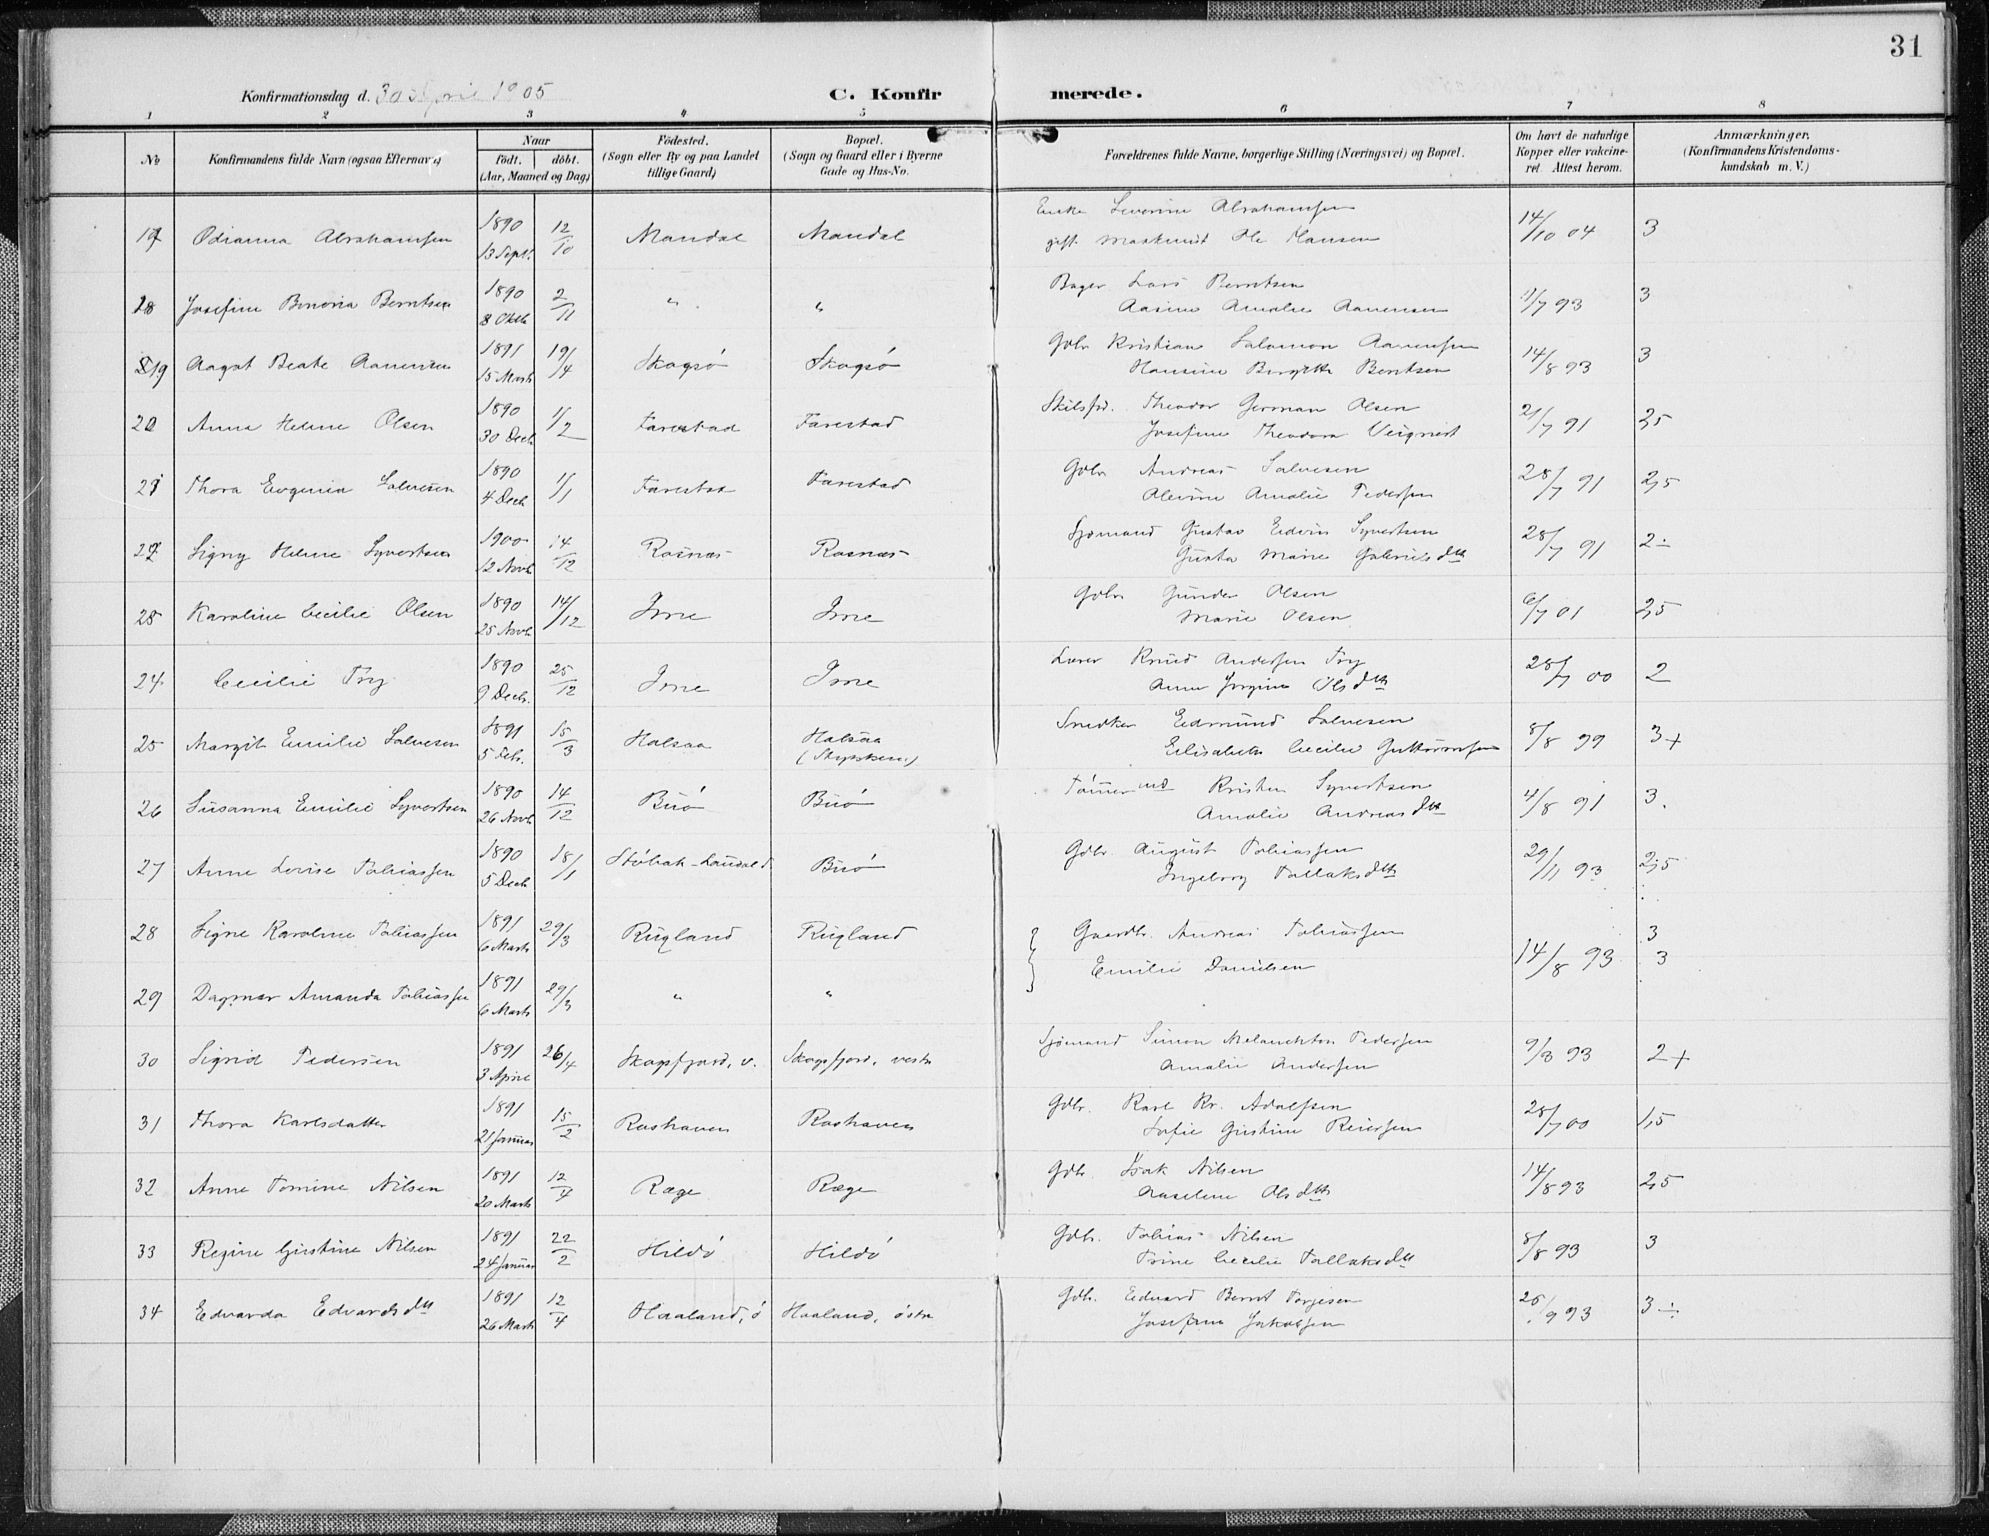 31
Konfirmationsdag d. 30 April 1905
C. Konfirmerede.
1 2 3 4 5 6 7 8
No
Konfirmandens fulde Navn (ogsaa Efternavn)
Naar
født. døbt.
(Aar, Maaned og Dag)
Fødested.
(Sogn eller By og paa Landet
tillige Gaard)
Bopæl.
(Sogn og Gaard eller i Byerne
Gade og Hus-No.
Forældrenes fulde Navne, borgerlige Stilling (Næringsvei) og Bopæl.
Om havt de naturlige
Kopper eller vakcine-
ret. Attest herom.
Anmærkninger.
(Konfirmandens Kristendoms-
kundskab m. V.)
17 Odianna Abrahamsen 1890 13 Sept. 12/10 Mandal Mandal Enke Severine Abrahamsen
gift Maskinist Ole Hansen 14/10 04 3
18 Josefine Benoria Berntsen 1890 8 Oktb 2/11 " " Bager Lars Berntsen
Aasine Amalie Aanensen 11/7 93 3
19 Aagot Beate Aanensen 1891 15 Marts 19/4 Skogsø Skogsø Gdbr Kristian Salomon Aanensen
Hansine Birgitte Berntsen 14/8 93 3
20 Anna Helene Olsen 1890 30 Decb 1/2 Farestad Farestad Skibsfø. Theodor German Olsen
Josefine Theodora 21/7 91 2,5
21 Thora Evgenia Salvesen 1890 4 Decb 1/1 Farestad Farestad Gdbr Andreas Salvesen
Alevine Amalie Pedersen 28/7 91 2,5
22 Signy Helene Syvertsen 1900 12 Novb 14/12 Rosnæs Rosnæs Sjømand Gustav Edvin Syvertsen
Gusta Marie Gabriels dtt 28/7 91 2÷
23 Karoline Cecilie Olsen 1890 25 Novb 14/12 Ime Ime Gdbr Gunder Olsen
Marie Olsen 6/7 01 2,5
24 Cecilie Try 1890 9 Decb. 25/12 Ime Ime Lærer Knud Andersen Try
Anne Jørgine Ols dtt 28/7 00 2
25 Margit Emilie Salvesen 1891 5 Feb. 15/3 Halsaa Halsaa
Snedker Edmund Salvesen
Elisabeth Cecilie Guttormsen 8/8 99 3+
26 Susanna Emilie Syvertsen 1890 26 Novb 14/12 Buø Buø Tømmermd Kristen Syvertsen
Amalie Andreas dtt 4/8 91 3.
27 Anne Lovise Tobiassen 1890 5 Decb 18/1 Støbak-Laudal S Buø Gdbr. August Tobiassen
Ingeborg Tallaks dtt 29/11 93 2,5
28 Signe Karoline Tobiassen 1891 6 Marts 29/3 Rugland Rugland Gaardbr. Andreas Tobiassen
Emilie Danielsen 14/8 93 3
29 Dagmar Amanda Tobiassen 1891 6 Marts 29/3 " " 3
30 Sigrid Pedersen 1891 3 April 26/4 Skogsfjord, v. Skogsfjord, vestr Sjømand Simon Melanchton Pedersen
Amalie Andersen 9/8 93 2+
31 Thora Karlsdatter 1891 21 Januar 15/2 Roshaven Roshaven Gdbr. Karl Kr. Adolfsen
Sofie Gustine Reiersen 28/7 00 1,5
32 Anne Tomine Nilsen 1891 20 Marts 12/4 Ræge Ræge Gdbr. Isak Nilsen
Aaseline Ols dtt 14/8 93 2,5
33 Regine Gustine Nilsen 1891 24 Januar 22/2 Hildø Hildø Gdbr. Tobias Nilsen
Trine Cecilie Tallaksdtt 8/8 93 3
34 Edvarda Edvards dtt 1891 26 Marts 12/4 Haaland, ø Haaland, østr Gdbr. Edvard Bernt Torjesen
Josefine Jakobsen 26/9 93 3÷